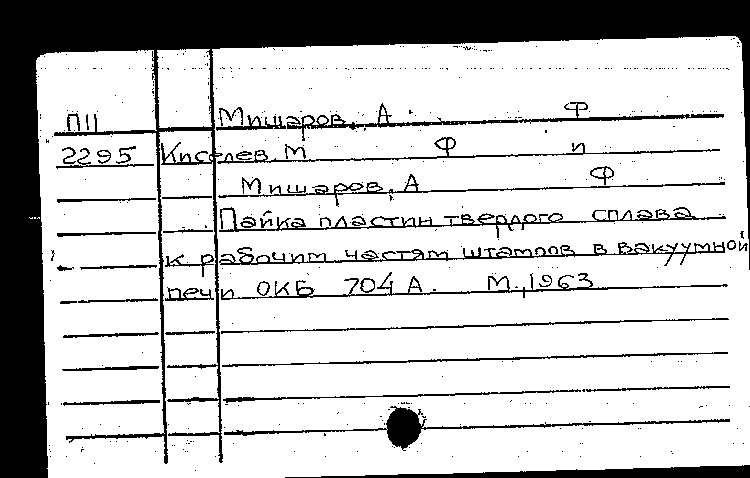 П11 Мишаров, А. Ф
2295 Киселев, М Ф и
Мишаров, А Ф
Пайка пластин твердого сплава
к рабочим частям штампов в вакуумной
печи ОКБ 704 А. М., 1963